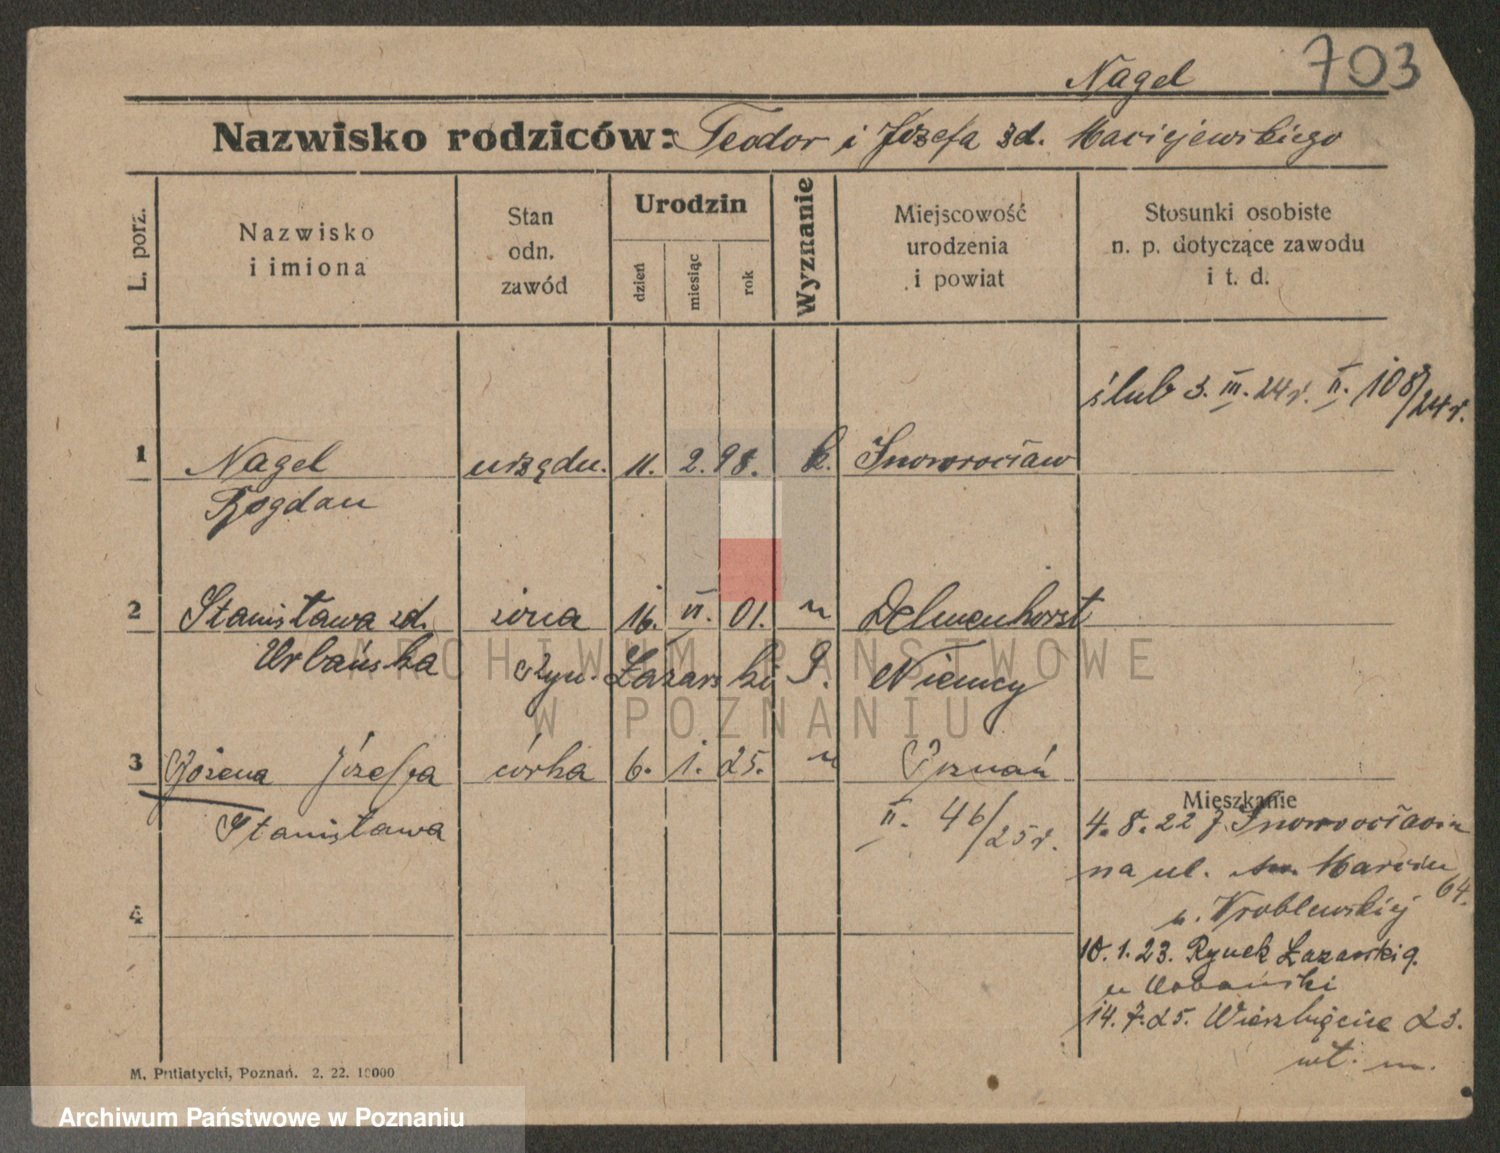 703
Nagel
Nazwisko rodziców: Teodor i Józefa zd. Maciejewskiego
L. porz.
Nazwisko i imiona
Stan odn. zawód
Urodzin
dzień
miesiąc
rok
Wyznanie
Miejscowość urodzenia i powiat
Stosunki osobiste n. p. dotyczące zawodu i t. d.
ślub 3. III. 24 r. II. 108/24 r.
1 Nagel urzędn. 11. 2. 98. k. Inowrocław
Bogdan
2 Stanisława zd. żona 16. VI. 01. " Delmenhorst
Urbańska Ryn. Łazarski 9. Niemcy
3 Bożena Józefa córka 6. 1. 25. " Poznań
Stanisława II. 46/25 r.
Mieszkanie
4. 8. 22 z Inowrocławia
na ul. św. Marcin 64.
u. Wroblewskiej
4
10. 1. 23. Rynek Łazarski 9.
u Urbański
14. 7. 25. Wierzbięcice 23.
wł. m.
M. Putiatycki, Poznań. 2. 22. 10000
ARCHIWUM PAŃSTWOWE
W POZNANIU
Archiwum Państwowe w Poznaniu